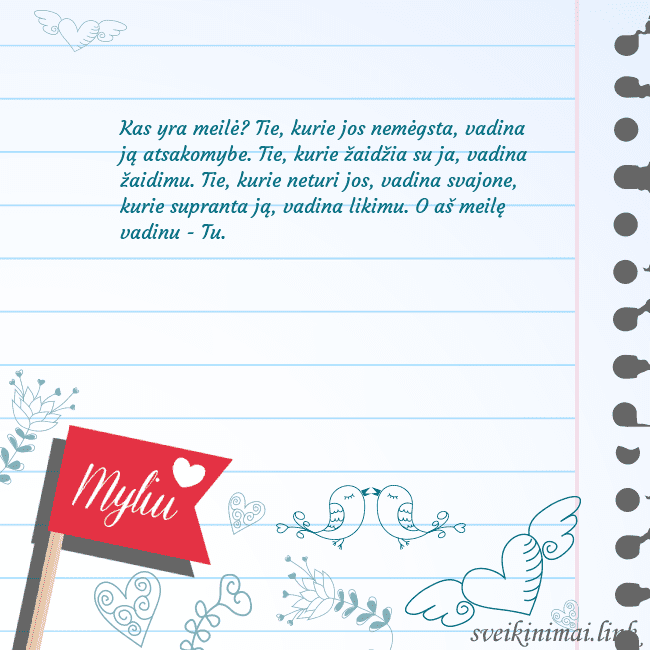 Kas yra meilė? Tie, kurie jos nemėgsta, vadina
ją atsakomybe. Tie, kurie žaidžia su ja, vadina
žaidimu. Tie, kurie neturi jos, vadina svajone,
kurie supranta ją, vadina likimu. O aš meilę
vadinu - Tu.
Myliu
sveikinimai.link